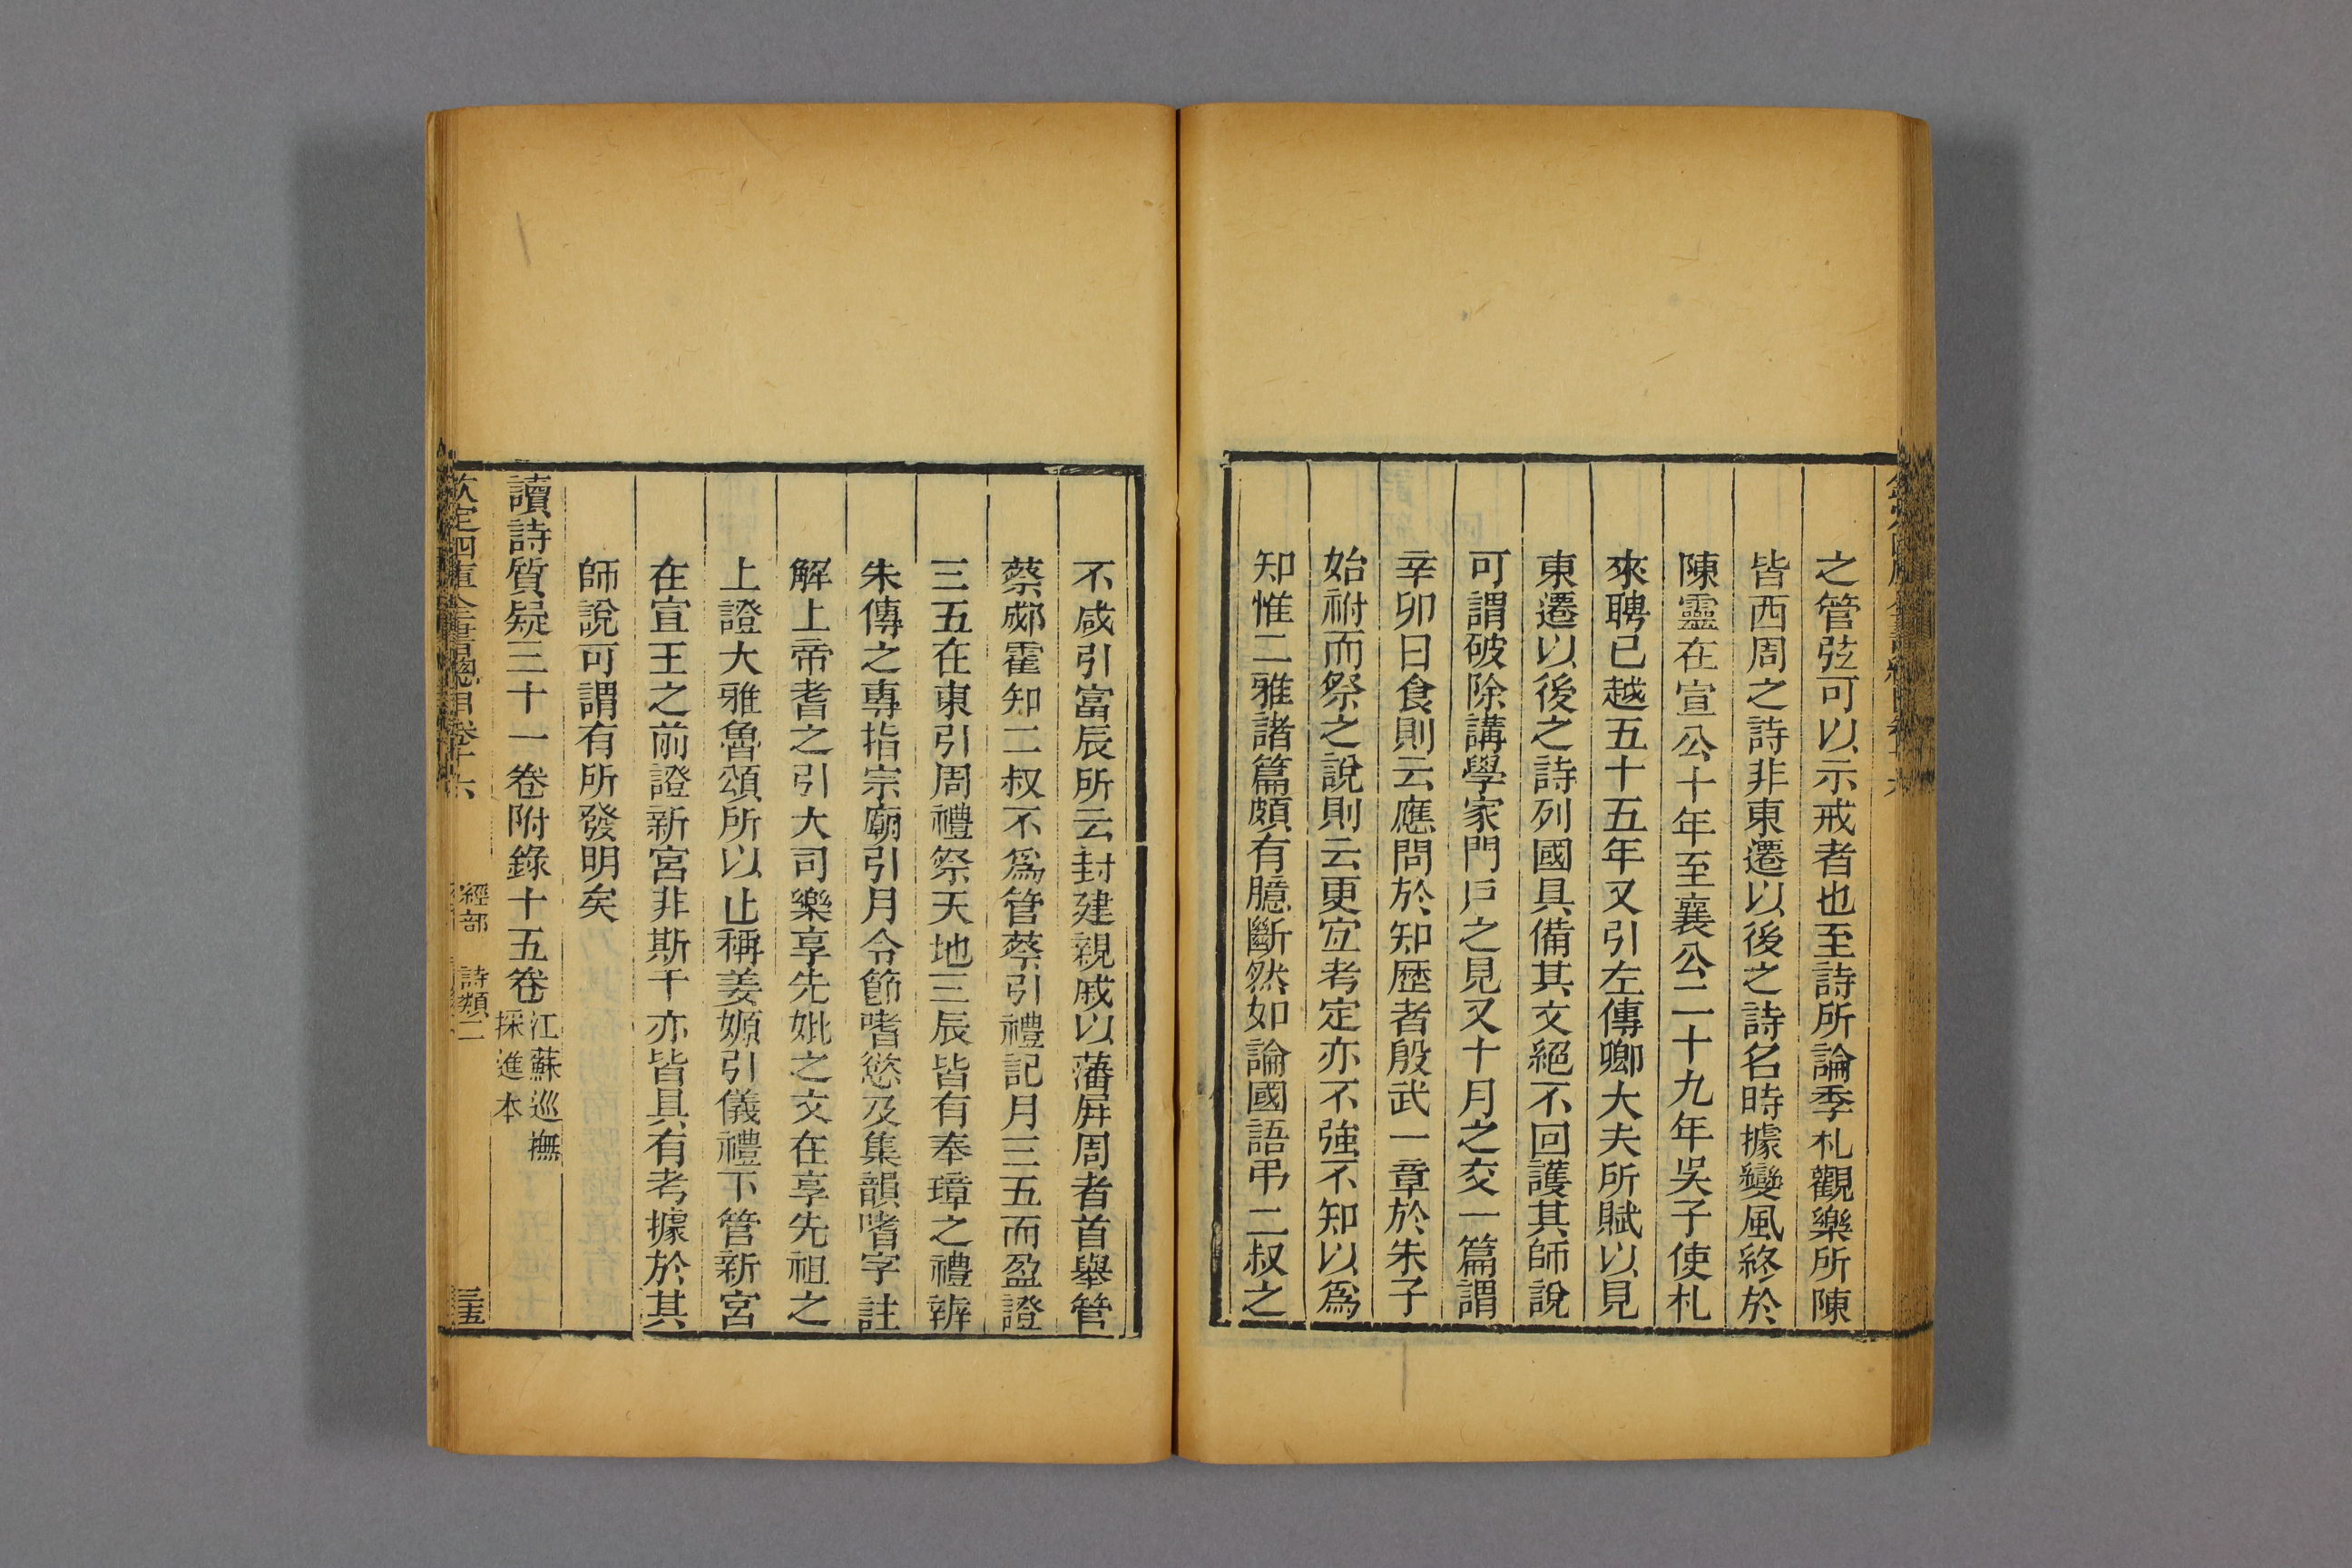 之管弦可以示戒者也至詩所論季札觀樂所陳
皆西周之詩非東遷以後之詩名時據變風終於
陳靈在宣公十年至襄公二十九年吳子使札
來聘已越五十五年又引左傳卿大夫所賦以見
東遷以後之詩列國具備其文絕不回護其師說
可謂破除講學家門戶之見又十月之交一篇謂
辛卯日食則云應問於知歷者殷武一章於朱子
始祔而祭之說則云更宜考定亦不強不知以爲
知惟二雅諸篇頗有臆斷然如論國語弔二叔之
不咸引富辰所云封建親戚以藩屏周者首舉管
蔡郕霍知二叔不爲管蔡引禮記月三五而盈證
三五在東引周禮祭天地三辰皆有奉璋之禮辨
朱傳之專指宗廟引月令節嗜慾及集韻嗜字註
解上帝耆之引大司樂享先妣之文在享先祖之
上證大雅魯頌所以止稱姜嫄引儀禮下管新宮
在宣王之前證新宮非斯干亦皆具有考據於其
師說可謂有所發明矣
讀詩質疑三十一卷附錄十五卷江蘇巡撫
採進本
欽定四庫全書總目卷十六
經部 詩類二
三五